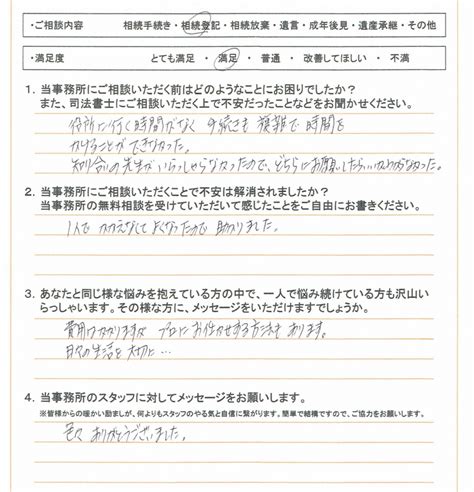 ・ご相談内容　相続手続き・相続登記・相続放棄・遺言・成年後見・遺産承継・その他
・満足度　とても満足 ・ 満足 ・ 普通 ・ 改善してほしい ・ 不満
1. 当事務所にご相談いただく前はどのようなことにお困りでしたか?
また、司法書士にご相談いただく上で不安だったことなどをお聞かせください。
役所に行く時間がなく 手続きも 複雑で 時間を
かけることが できなかった。
知り合いの先生がいらっしゃらなかったので、どちらにお願いしたらいいかわからなかった。
2. 当事務所にご相談いただくことで不安は解消されましたか?
当事務所の無料相談を受けていただいて感じたことをご自由にお書きください。
1人で かかえなくて よくなったので 助かりました。
3. あなたと同じ様な悩みを抱えている方の中で、一人で悩み続けている方も沢山い
らっしゃいます。その様な方に、メッセージをいただけますでしょうか。
費用はかかりますが プロにお任せする方法も あります。
日々の生活を 大切に…
4. 当事務所のスタッフに対してメッセージをお願いします。
※皆様からの暖かい励ましが、何よりもスタッフのやる気と自信に繋がります。簡単で結構ですので、ご協力をお願いします。
色々 ありがとうございました。